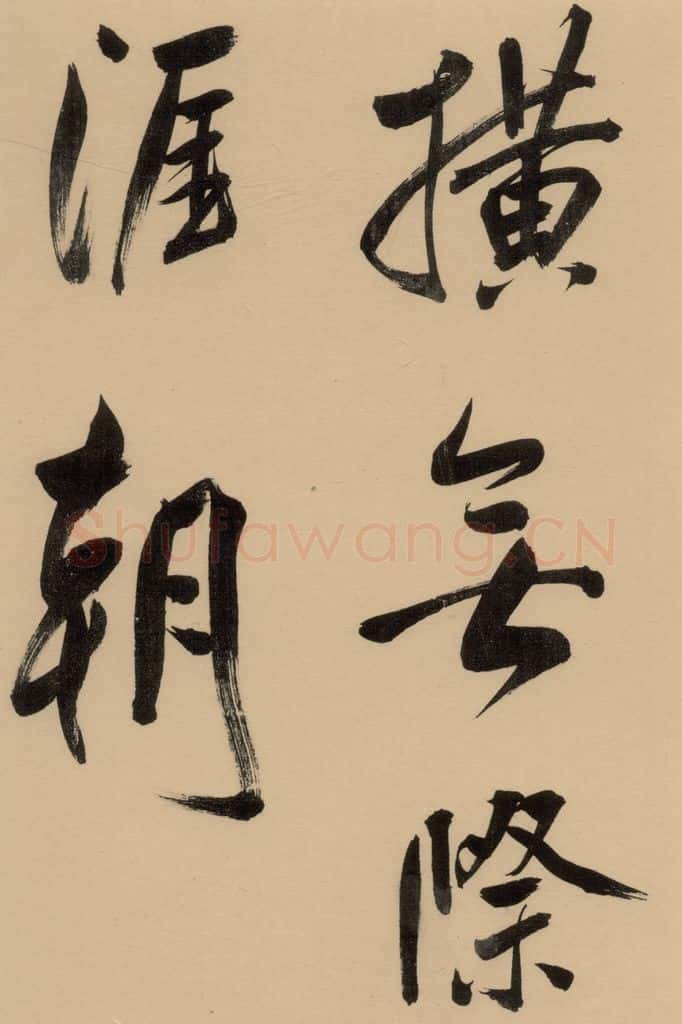 横無際
涯朝
Shufawang.CN